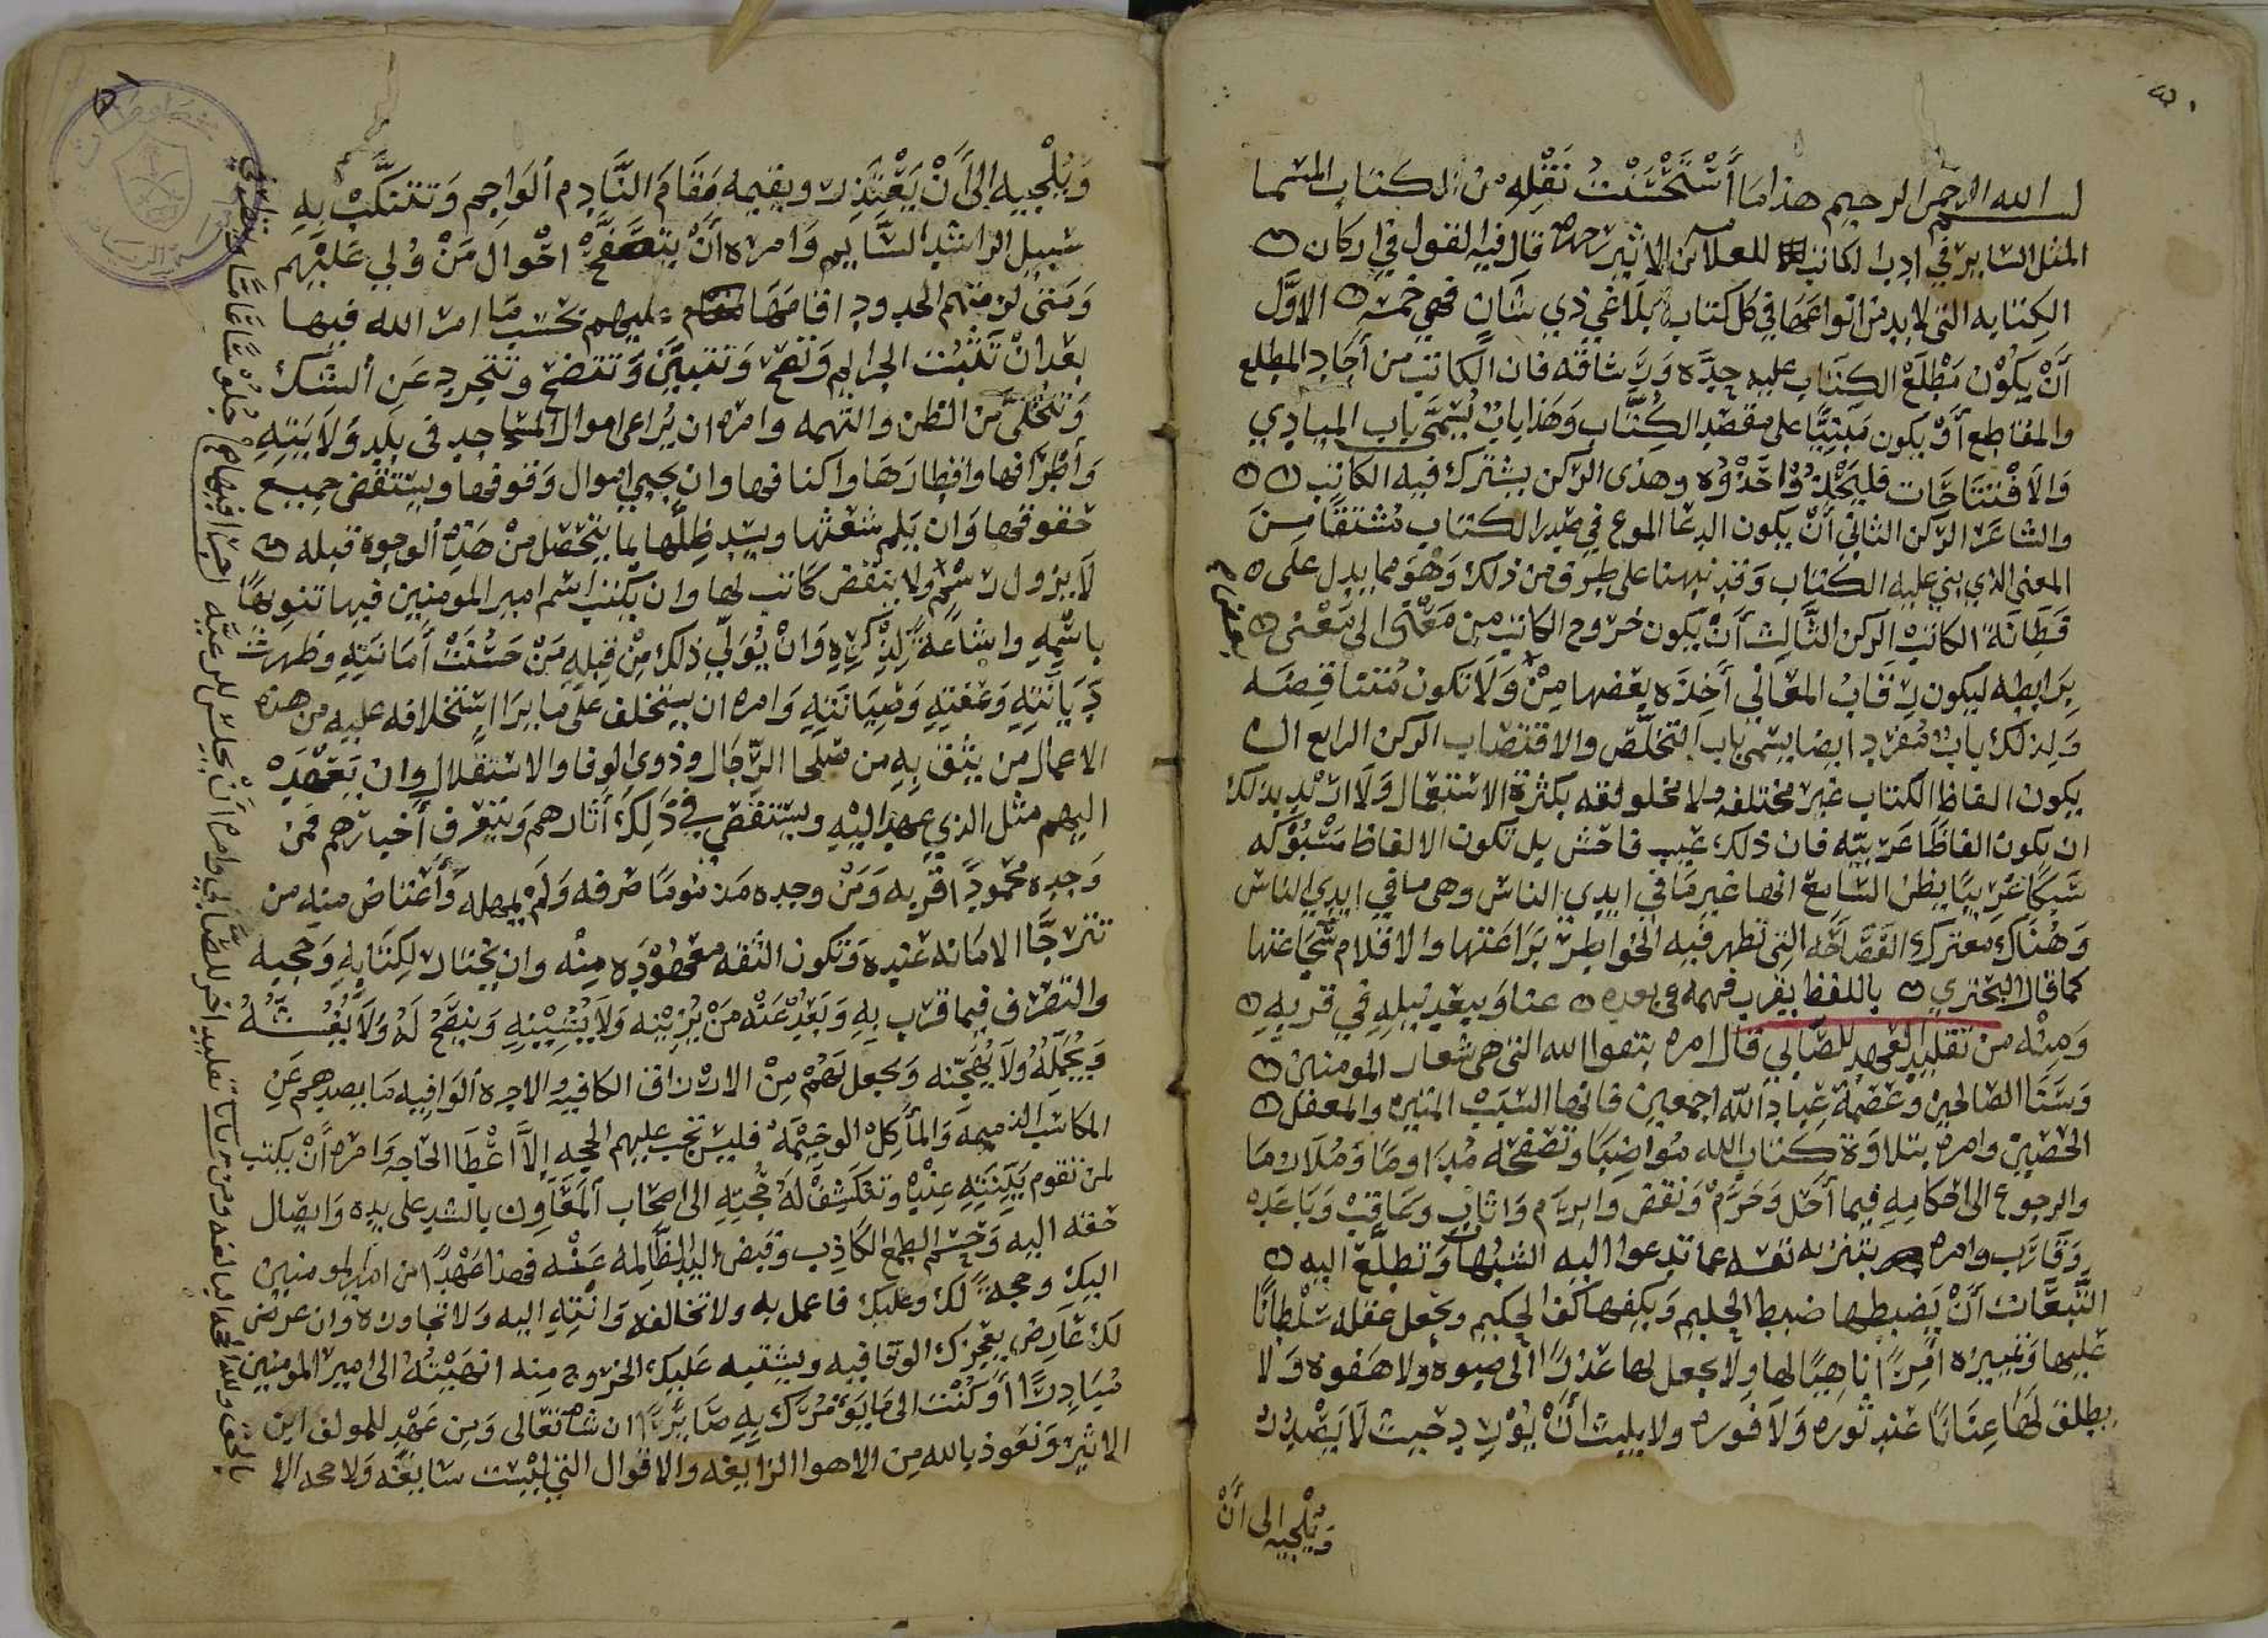 بسم الله الرحمن الرحيم هذا ما أستحسنت نقله من الكتاب المسما
المثل الساير في ادب الكاتب للعلامه ابن الاثير رحمه قال فيه القول في اركان
الكتابه التى لا بد من انواعها في كل كتاب بلاغي ذي شان فهي خمسه الاوَّل
أَنْ يكون مَطْلَعْ الكتاب عليه جِدَّه وَرَشاقه فان الكاتب من أجاد المطلع
والمقاطع أَوْ يكون مَبْنِيًّا على مقصد الكتاب وَهَذا بابٌ يُسَمَّى باب المبادي
وَالاَفْتتاحَات فليَحْذُوْا حَذْوُه وهذى الركن يشترك فيه الكاتب
والشاعر الركن الثاني أَنْ يكون الدعا المودع في صدر الكتاب مُشتقًا مِنَ
المعنى الذي بني عليه الكتاب وَقد نبهنا على طرق من ذلك وَهْوَ مما يدل على
فَطَانَة الكاتب الركن الثَّالث أَنْ يكون خروج الكاتب مِن مَعْنًى الى مَعْنى
بِرَابِطه ليكون رِقَابُ المعَاني أَخِذَه بعضها مِنْ وَلاَ تكون مُقتضبَه
وَلِذلك بابٌ مُفرَد ايضا يسمى باب التخلّص والاقتضاب الركن الرابع ان
يكون الفاظ الكتاب غير مختلفه ولا مخلولقه بكثرة الاستعمال وَلاَ ارْيد بذلك
ان يكون الفاظًا غَرِيبَه فان ذلك عَيب فاحش بل تكون الالفاظ مَسْبُوْكه
سَبكًا غَرِيبًا يظن السَّامع انها غير مَا في ايدي الناس وهى ما في ايدي الناس
وَهُنَاك معترك الفَصَاحَه التى تظهر فيه الخواطر بَرَاعتها والاقلام شَجَاعتها
كما قال البحتري باللفظ يقرب فهمه فى بعده عنا وَيبعد نيله في قربه
وَمِنْه من تقليد العهد للصَّابي قال امره بتقوا الله التى هى شعار المومنين
وَسَنَا الصالحين وَعصْمَة عِبَاد الله اجمعين فانها السَبَبْ المتين والمعقل
الحصين وامره بتلاوَة كتاب الله مُواضِبًا وَتصفحه مُدَاومًا وَمُلازمًا
والرجوع الى احكامِهِ فيما أَحَل وَحَرَّمْ وَنقض وابرَم وَاثاب وَعَاقبْ وَبَاعَد
وَقَارَب وامره بتنزيه نفسه عما تدعوا اليه الشبُهات وَتطلَّع اليه
التَّبعَات أَنْ يَضبطها ضبط الحليم وَيكفها كف الحكيم ويجعل عقله سُلْطانًا
عليها وَتمييزه امِرًا ناهيًا لها ولا يجعل لها عذرًا الى صبوة ولا هَفوه وَلا
يطلق لَهَا عِنَانًا عند ثوره وَلاَ فوره
وَيُلْجيه الى أَنْ
وَيُلْجيه الى أَنْ يَعْتَذِر ويقيمه مَقَامَ النَّادِم ألوَاجِم وَتتنكَّبْ بهِ
سَبيل الراشد السَّالِم وَامره أَنْ يتصَفَّحْ احْوال مَنْ وُلي عَليْهِم
عليهم بحسَب مَا امر الله فيها
بعد انْ تَثْبُت الجرايم وَتصح وَتتبيَّن وَتتضح وتتجرد عَن ألشّك
وَتتخلَّى مَن الظن والتهمه وامره ان يُراعى اموال المسَاجد في بلَده وَلاَيَتِهِ
وَأطْرَافها واقطارَهَا واكنافها وان يجبي اموال وَقوفها ويستقصى جميع
حقوقها وَان يَلم شعثها ويسد خللها بما يتحصّل مِنْ هَذِه ألوجوه قبله
لاَ يزول رسْمٌ ولا ينقض كَانت لها وان يكتب اسم امير المومنين فيها تنويهًا
باسْمِهِ واشَاعةً لِذِكْرِهِ وَانْ يُوَلّي ذلك مِنْ قِبله مَنْ حَسُنَتْ أَمَانتِهِ وظهرت
دَيَانَتِهِ وَعفتِهِ وَصِيَانتَهِ وَامره ان يستخلف عَلَى ما يرَا استخلافه عليه من هذه
الاعمال من يثق بِهِ مِن صَلحا الرّجَال وذوي الوفا والاستقلال وان يَعْهَدْ
اليهم مثل الذي عهد اليْهِ ويستقصي في ذَلِك أثارهم وَيتعرف أَخبارهم فمَن
وَجده محمُودًا اقربه وَمَنْ وجده مَذمُومًا صَرفه وَلَمْ يمهله وَأَعتَاض منه من
تترجَّا الامَانه عنده وَتكون الثقه معهُوْدَه مِنْه وان يختار لكِتابِهِ وَحجبه
والتصرف فيما قرب بِهِ وَبَعُدْ عَنْه مَنْ يُزيّنه وَلاَ يُشِيْنِهِ وَينصَح لَهُ وَلاَ يُغُشّه
وَيُجمّلهُ وَلاَ يُهَجّنه وَيجعل لَهُمْ مِنْ الارزاق الكافيه والاجره ألوَافِيه مَا يصدهم عَن
المكاسب الذميمَه وَالمأكِلْ الوخيْمَه فليس تجب عليهم الحجه إلاّ أَعْطَا الحاجه وامره أَنْ يكتب
لمن تقوم بَيّنتِهِ عِنْده وَتنكَشِفْ لَهُ حُجَّتِهِ الى اصحاب ألمعَاوِن بالشد على يدِه وَايصَال
حقه اليه وَحسم الطمع الكاذب وقبض اليد الظَّالِمَه عَنْه فهذا عَهْدٌ من امير المومنين
اليك وحجهً لك وعليك فاعمل به ولا تخالفه وَانْتهِ اليه وَلا تجاوزه وان عرض
لك عَارِض يعجزك الوقا فيه ويشتبه عليك الخروج منه انهَيْتُهُ الى امير المومنين
مُبَادِرًا وكُنْت الى مَا يؤمُرك بِهِ صَايِرًا ان شا تعالى وَمِن عَهْدٍ للمولف ابن
الاثير وَنعوذ بالله مِن الاهوا الزايغه والاقوال التي ليْست سَايغَه وَلا محه الا